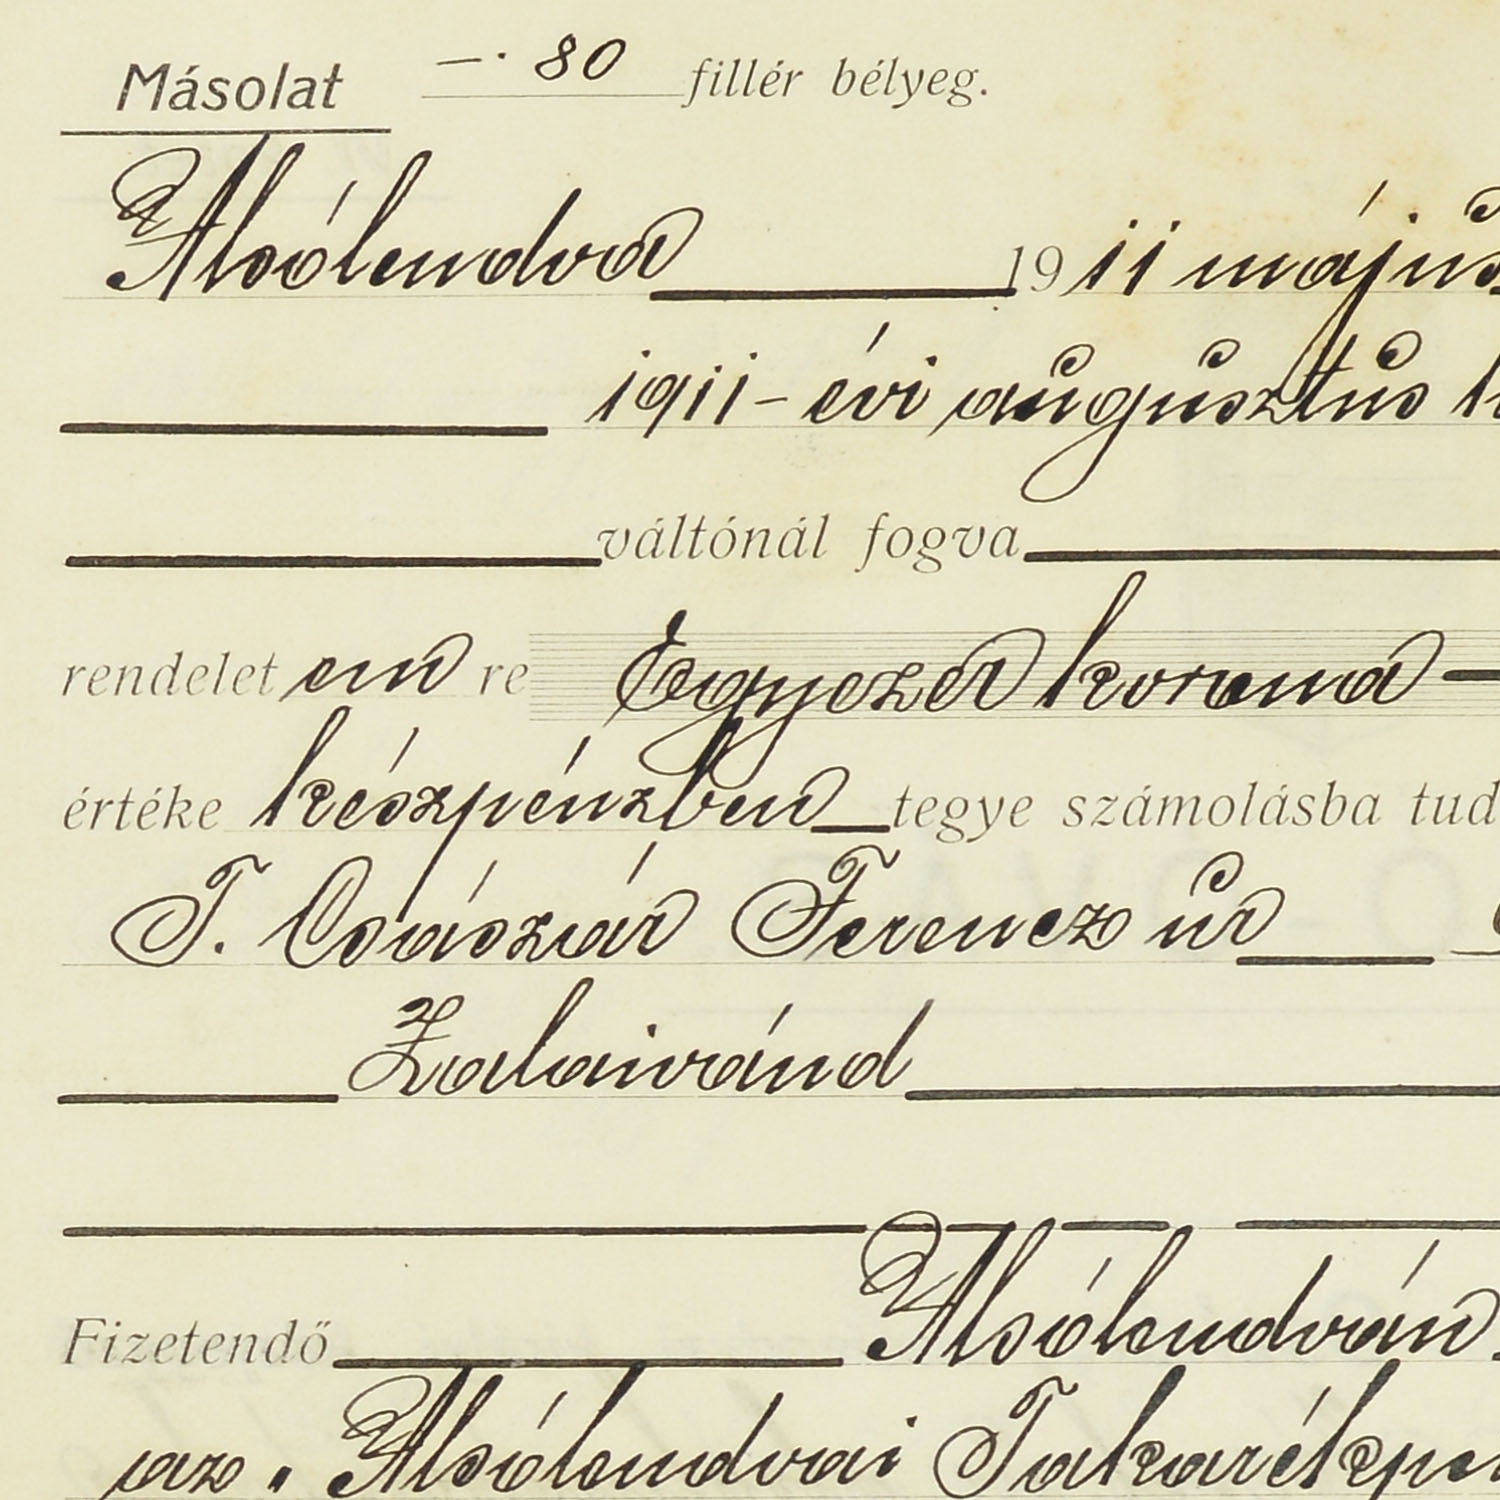 Másolat —·80 fillér bélyeg.
Alsólendva 1911 május
1911-évi augusztus
váltónál fogva
rendelet em re Egyezer korona —
értéke készpénzben tegye számolásba tud
T. Császár Ferencz úr
Zalaivánd
Fizetendő Alsólendván
az „Alsólendvai Takarékpén